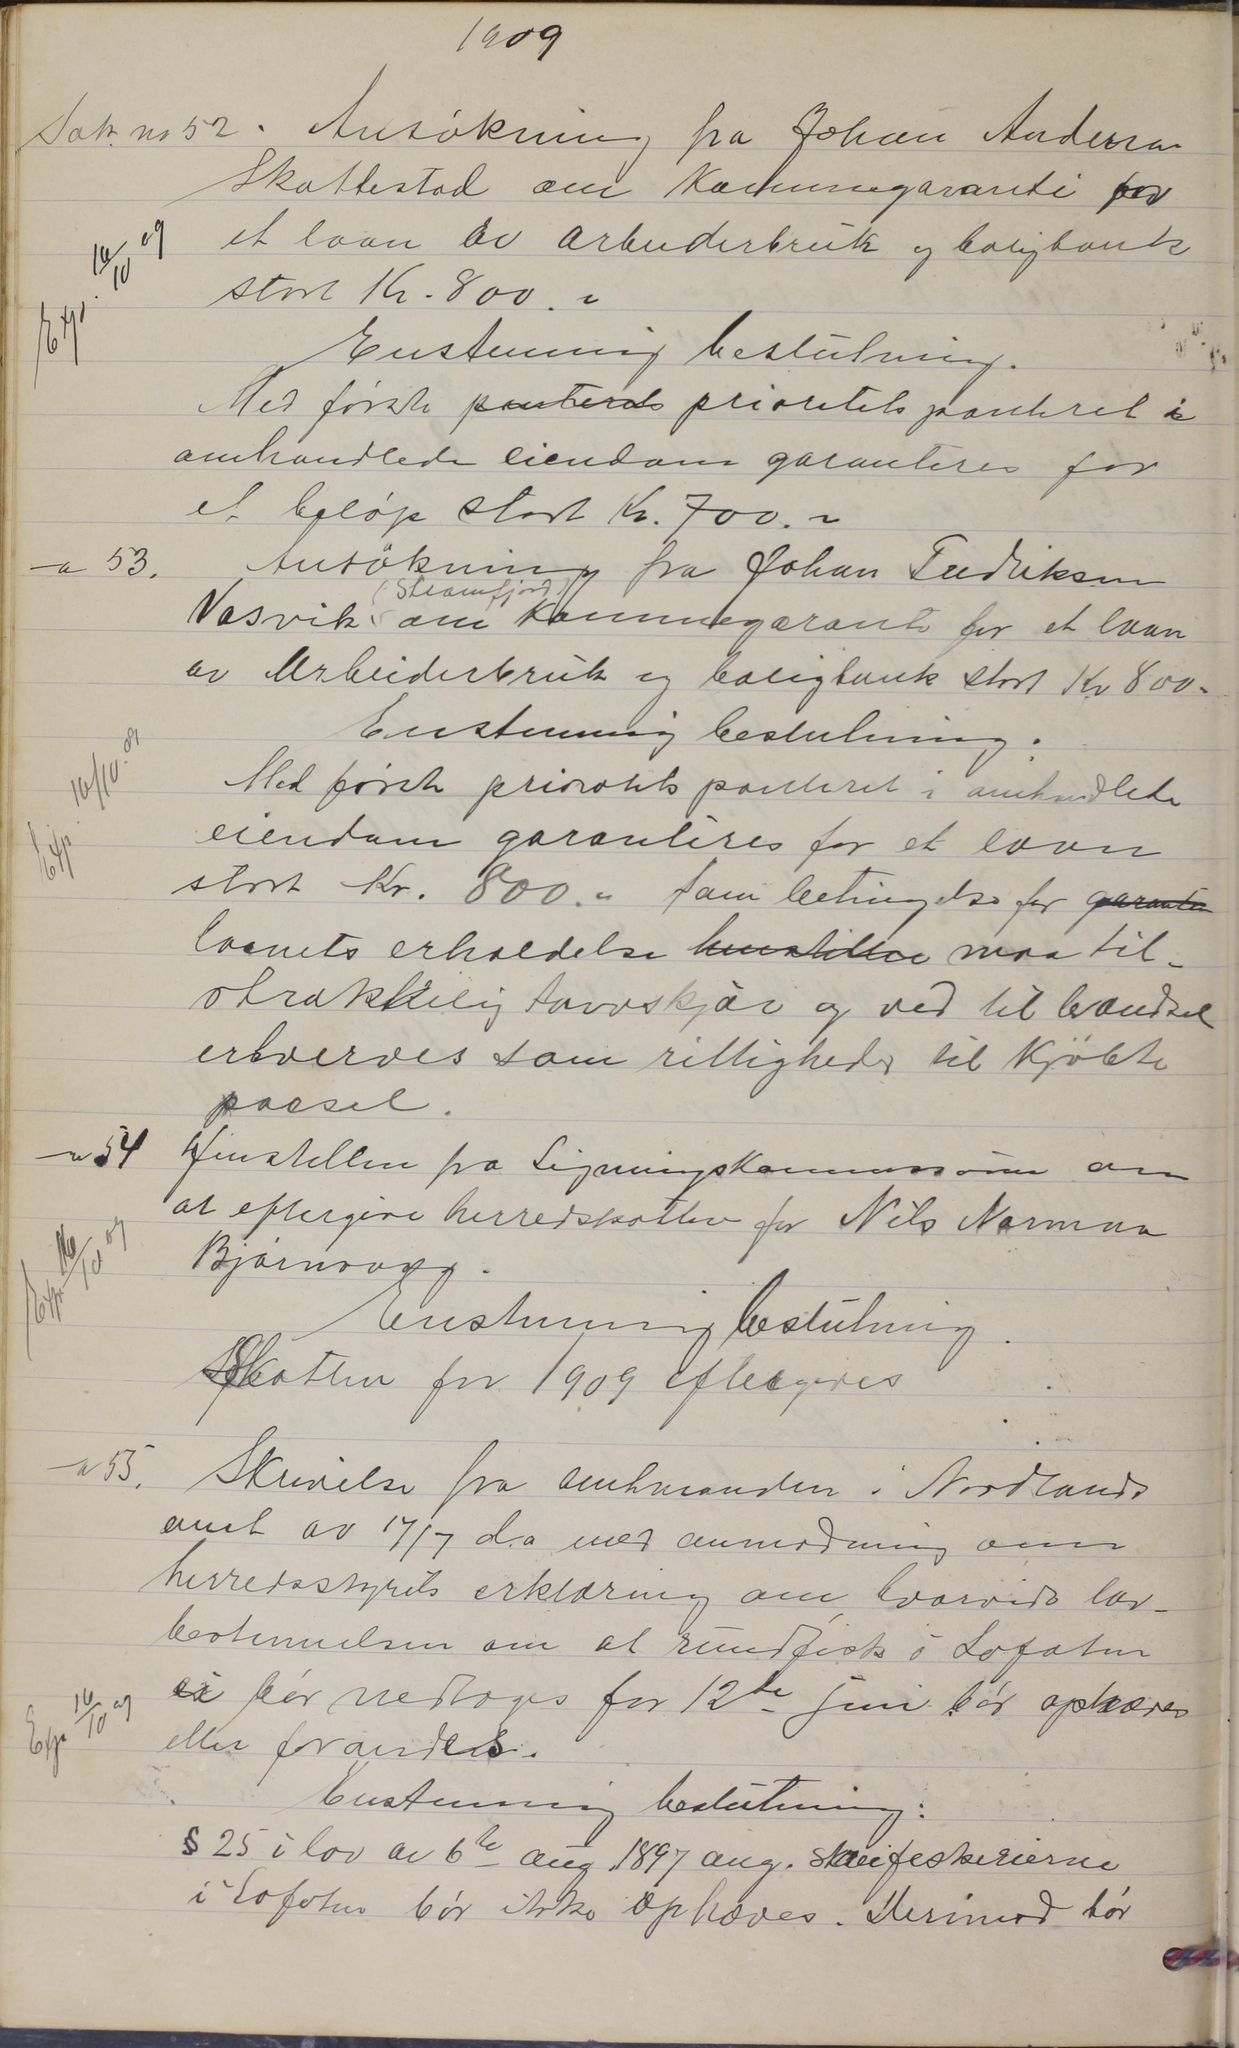 1909
Sak no 52. Ansökning fra Johan Andersen
Skottestad om Kommunegaranti for
et laan av arbeiderbruk og boligbank
stort Kr. 800.-
Exp. 16/10 09
Enstemmig beslutning.
Med første panterets prioritets panteret i
omhandlede eiendom garanteres for
et beløp stort Kr. 700.-
- " 53. Ansökning fra Johan Fredriksen
(Steamfjord)
Vasvik om Kommunegaranti for et laan
av Arbeiderbruk og boligbank stort Kr 800-
Enstemmig beslutning.
Exp. 16/10. 09
Med første prioritets panteret i omhandlede
eiendom garanteres for et laan
stort Kr. 800.- Som betingelse for garantien
laanets erholdelse henstilles maa til-
strækkelig torvskjær og ved til brændsel
erhverves som rettigheder til kjøbte
parsel.
- " 54 Henstillen fra Ligningskommissionen om
at eftergive herredskatten for Nils Norman
Bjørnvaag.
Exp. 16/10 09
Enstemmig beslutning.
Skatten for 1909 eftergives
- " 55. Skrivelse fra amtmanden i Nordlands
amt av 17/7 d.a med anmodning om
herredsstyrets erklæring om hvorvidt lov-
bestemmelsen om at rundfisk i Lofoten
ei bør nedtages før 12te juni bør ophæves
eller forandres.
Exp. 16/10 09
Enstemmig beslutning:
§ 25 i lov av 6te aug 1897 ang. skreifiskerierne
i Lofoten bør ikke ophæves. Derimod bør